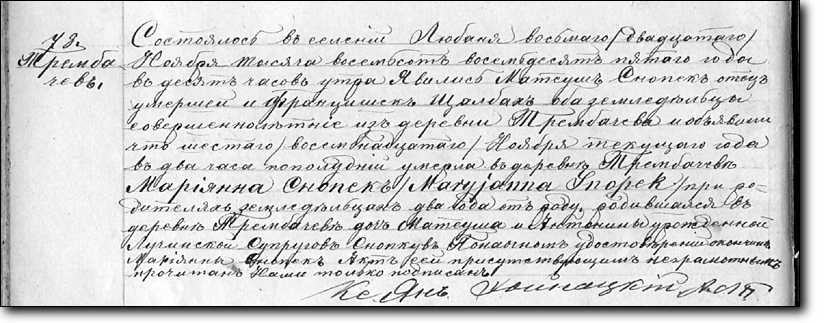 73.
Тремба
чевъ,
Состоялось въ селеніи Любаня восьмаго /двадцатаго/
Ноября тысяча восемьсотъ восемьдесятъ пятаго года
въ десять часовъ утра Явились Матеушъ Снопекъ отецъ
умершей и Францишекъ Щалбах оба земледѣльцы
совершеннолѣтніе изъ деревни Трембачева и объявили
что шестаго /восемнадцатаго/ Ноября текущаго года
въ два часа пополудни умерла въ деревнѣ Трембачевѣ
Маріянна Снопекъ /Maryjanna Snopek/ при ро-
дителяхъ земледѣльцахъ два года отъ роду, родившаяся въ
деревнѣ Трембачевѣ дочь Матеуша и Антонины урожденной
Лучинской Супруговъ Снопкувъ По наочномъ удостовѣреніи о кончинѣ
Маріянны Снопекъ Актъ сей присутствующимъ неграмотнымъ
прочитанъ Нами только подписанъ
Кс Янъ Хойнацкій